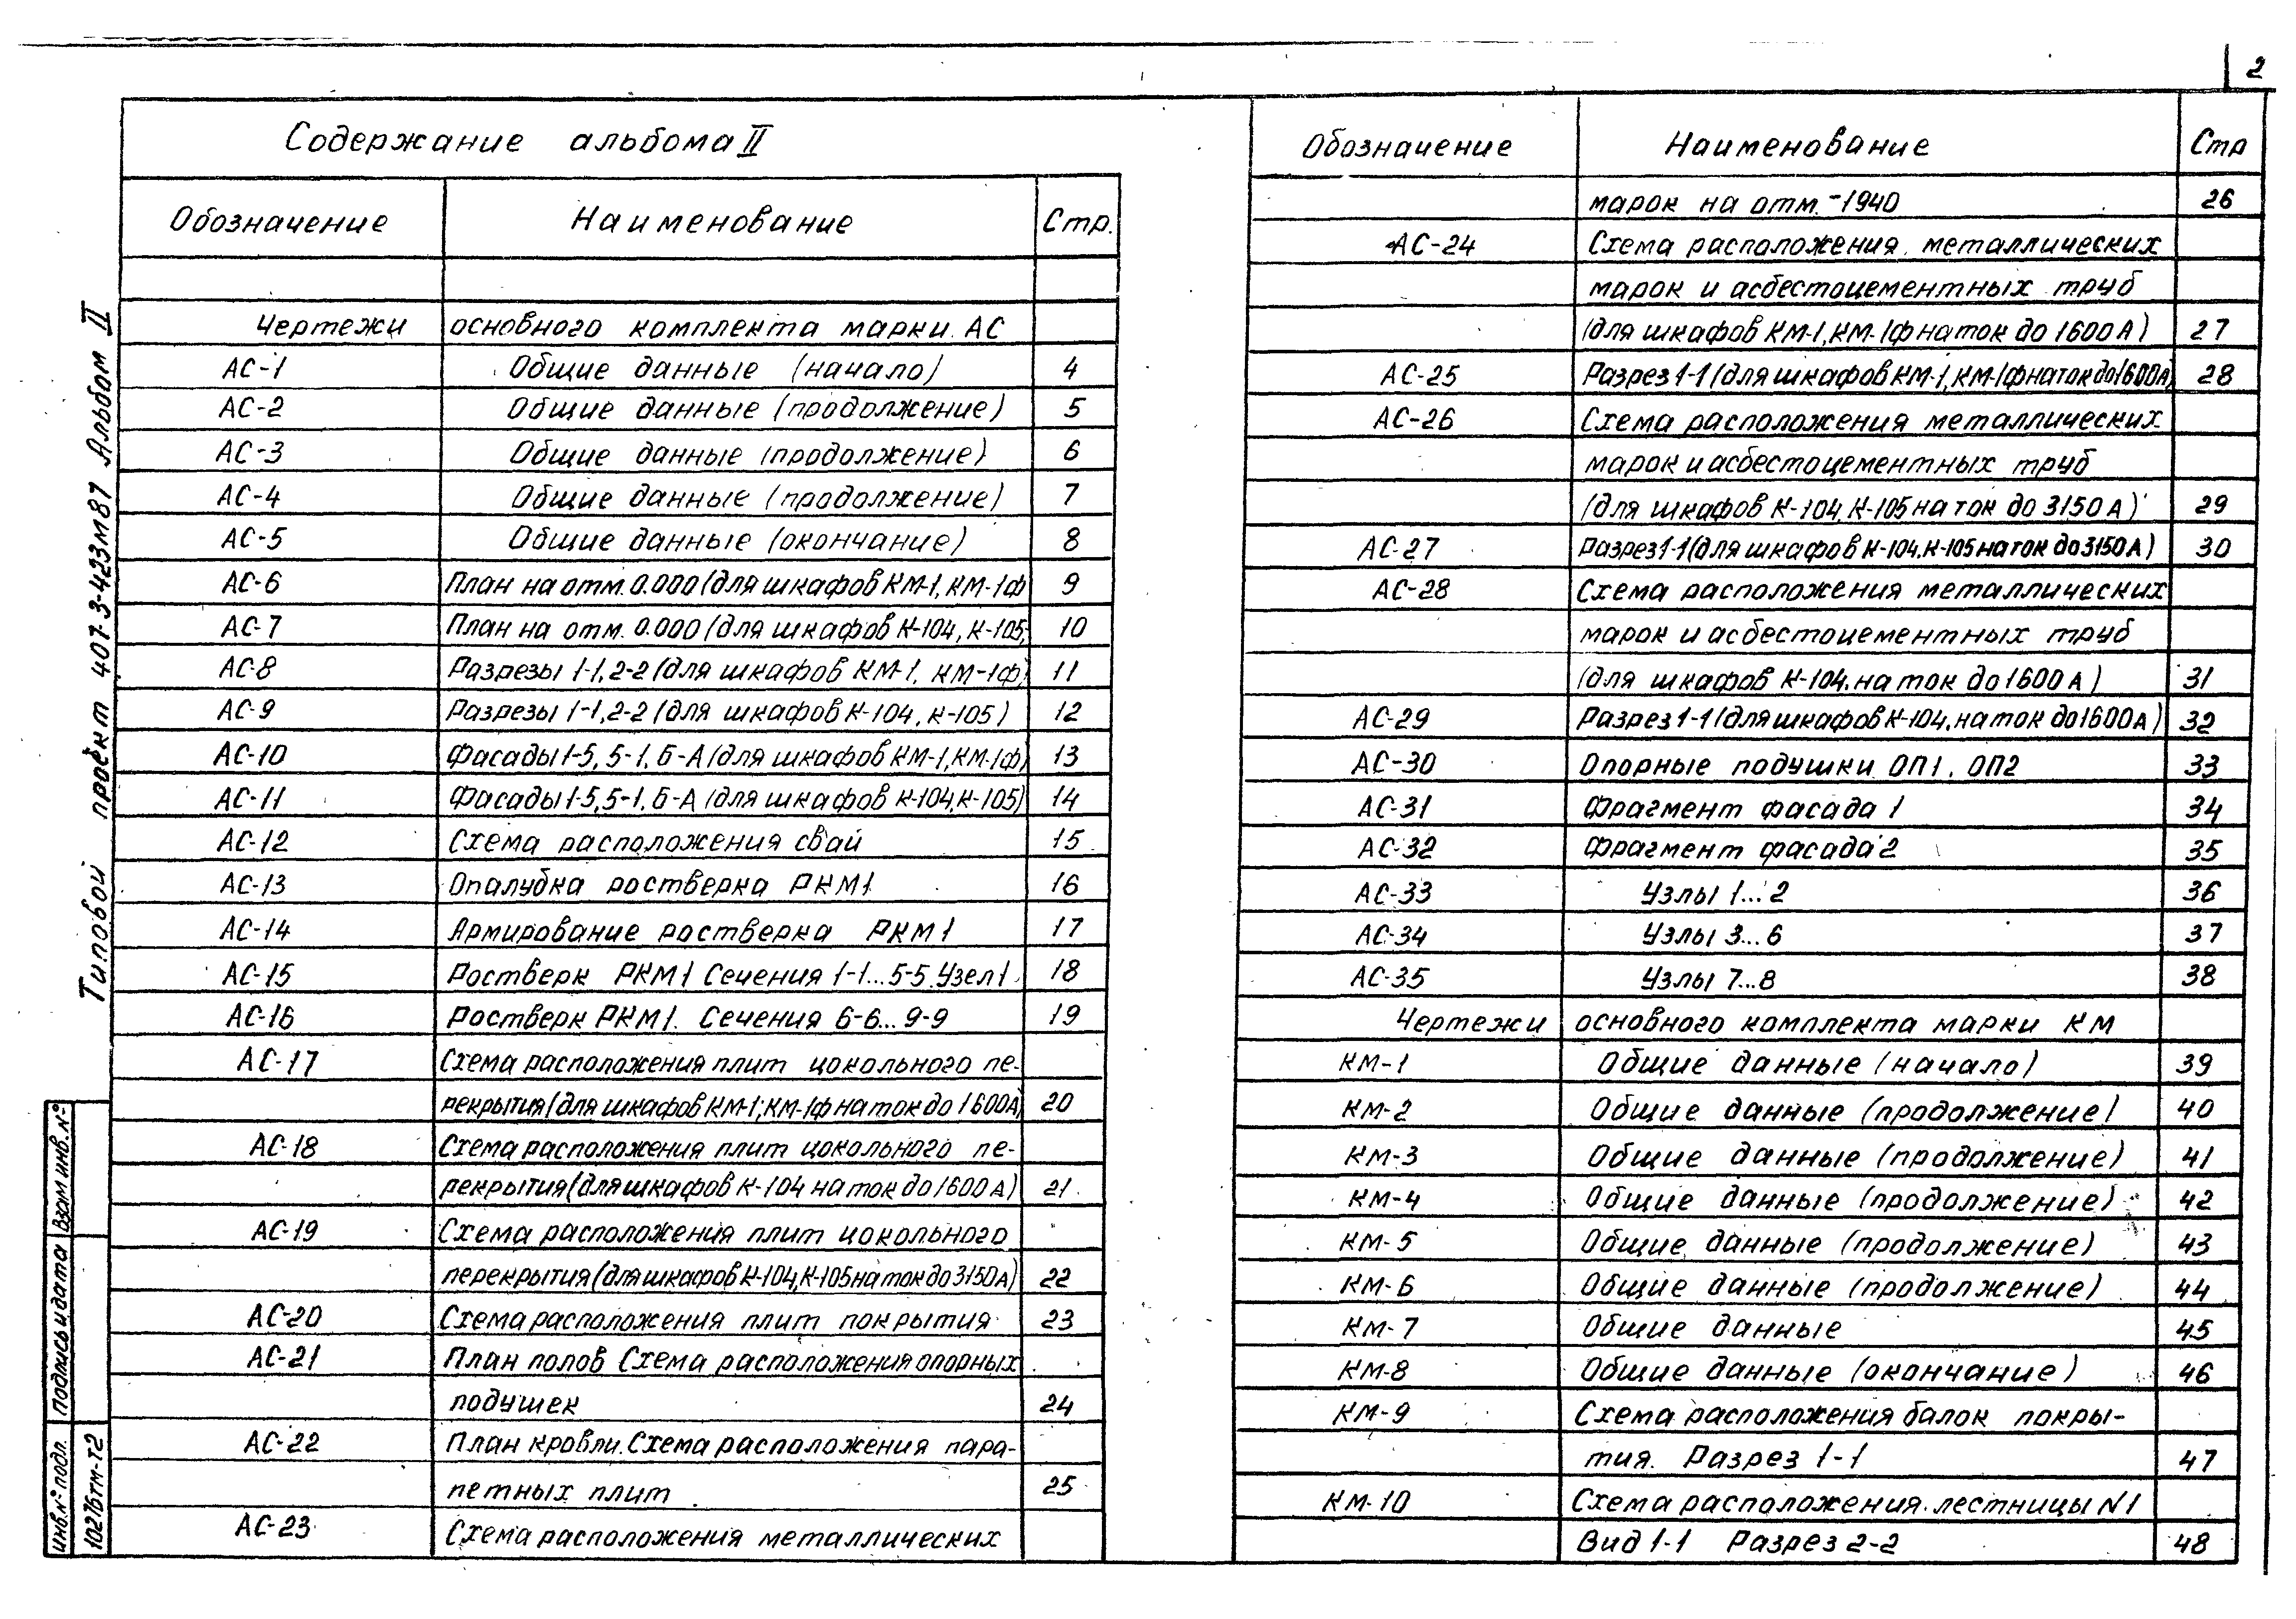 2
Типовой проект 407-3-423м87 Альбом II
Содержание альбома II
Обозначение Наименование Стр.
Чертежи основного комплекта марки АС
АС-1 Общие данные (начало) 4
АС-2 Общие данные (продолжение) 5
АС-3 Общие данные (продолжение) 6
АС-4 Общие данные (продолжение) 7
АС-5 Общие данные (окончание) 8
АС-6 План на отм. 0.000 (для шкафов КМ-1, КМ-1ф 9
АС-7 План на отм. 0.000 (для шкафов К-104, К-105; 10
АС-8 Разрезы 1-1, 2-2 (для шкафов КМ-1, КМ-1ф) 11
АС-9 Разрезы 1-1, 2-2 (для шкафов К-104, К-105) 12
АС-10 Фасады 1-5, 5-1, Б-А (для шкафов КМ-1, КМ-1ф) 13
АС-11 Фасады 1-5, 5-1, Б-А (для шкафов К-104, К-105) 14
АС-12 Схема расположения свай 15
АС-13 Опалубка ростверка РКМ1 16
АС-14 Армирование ростверка РКМ1 17
АС-15 Ростверк РКМ1 Сечения 1-1...5-5. Узел 1 18
АС-16 Ростверк РКМ1. Сечения 6-6...9-9 19
АС-17 Схема расположения плит цокольного пе-
рекрытия (для шкафов КМ-1; КМ-1ф на ток до 1600А) 20
АС-18 Схема расположения плит цокольного пе-
рекрытия (для шкафов К-104 на ток до 1600 А) 21
АС-19 Схема расположения плит цокольного
перекрытия (для шкафов К-104, К-105 на ток до 3150А) 22
АС-20 Схема расположения плит покрытия 23
АС-21 План полов Схема расположения опорных
подушек 24
АС-22 План кровли. Схема расположения пара-
петных плит 25
АС-23 Схема расположения металлических
Обозначение Наименование Стр
марок на отм. -1940 26
АС-24 Схема расположения металлических
марок и асбестоцементных труб
(для шкафов КМ-1, КМ-1ф на ток до 1600 А) 27
АС-25 Разрез 1-1 (для шкафов КМ-1, КМ-1ф на ток до 1600А) 28
АС-26 Схема расположения металлических
марок и асбестоцементных труб
(для шкафов К-104, К-105 на ток до 3150 А) 29
АС-27 Разрез 1-1 (для шкафов К-104, К-105 на ток до 3150А) 30
АС-28 Схема расположения металлических
марок и асбестоцементных труб
(для шкафов К-104, на ток до 1600 А) 31
АС-29 Разрез 1-1 (для шкафов К-104, на ток до 1600А) 32
АС-30 Опорные подушки ОП1, ОП2 33
АС-31 Фрагмент фасада 1 34
АС-32 Фрагмент фасада 2 35
АС-33 Узлы 1...2 36
АС-34 Узлы 3...6 37
АС-35 Узлы 7...8 38
Чертежи основного комплекта марки КМ
КМ-1 Общие данные (начало) 39
КМ-2 Общие данные (продолжение) 40
КМ-3 Общие данные (продолжение) 41
КМ-4 Общие данные (продолжение) 42
КМ-5 Общие данные (продолжение) 43
КМ-6 Общие данные (продолжение) 44
КМ-7 Общие данные 45
КМ-8 Общие данные (окончание) 46
КМ-9 Схема расположения балок покры-
тия. Разрез 1-1 47
КМ-10 Схема расположения лестницы N1
Вид 1-1 Разрез 2-2 48
Взам инв. №
Подпись и дата
Инв. № подл.
10276тм-т2